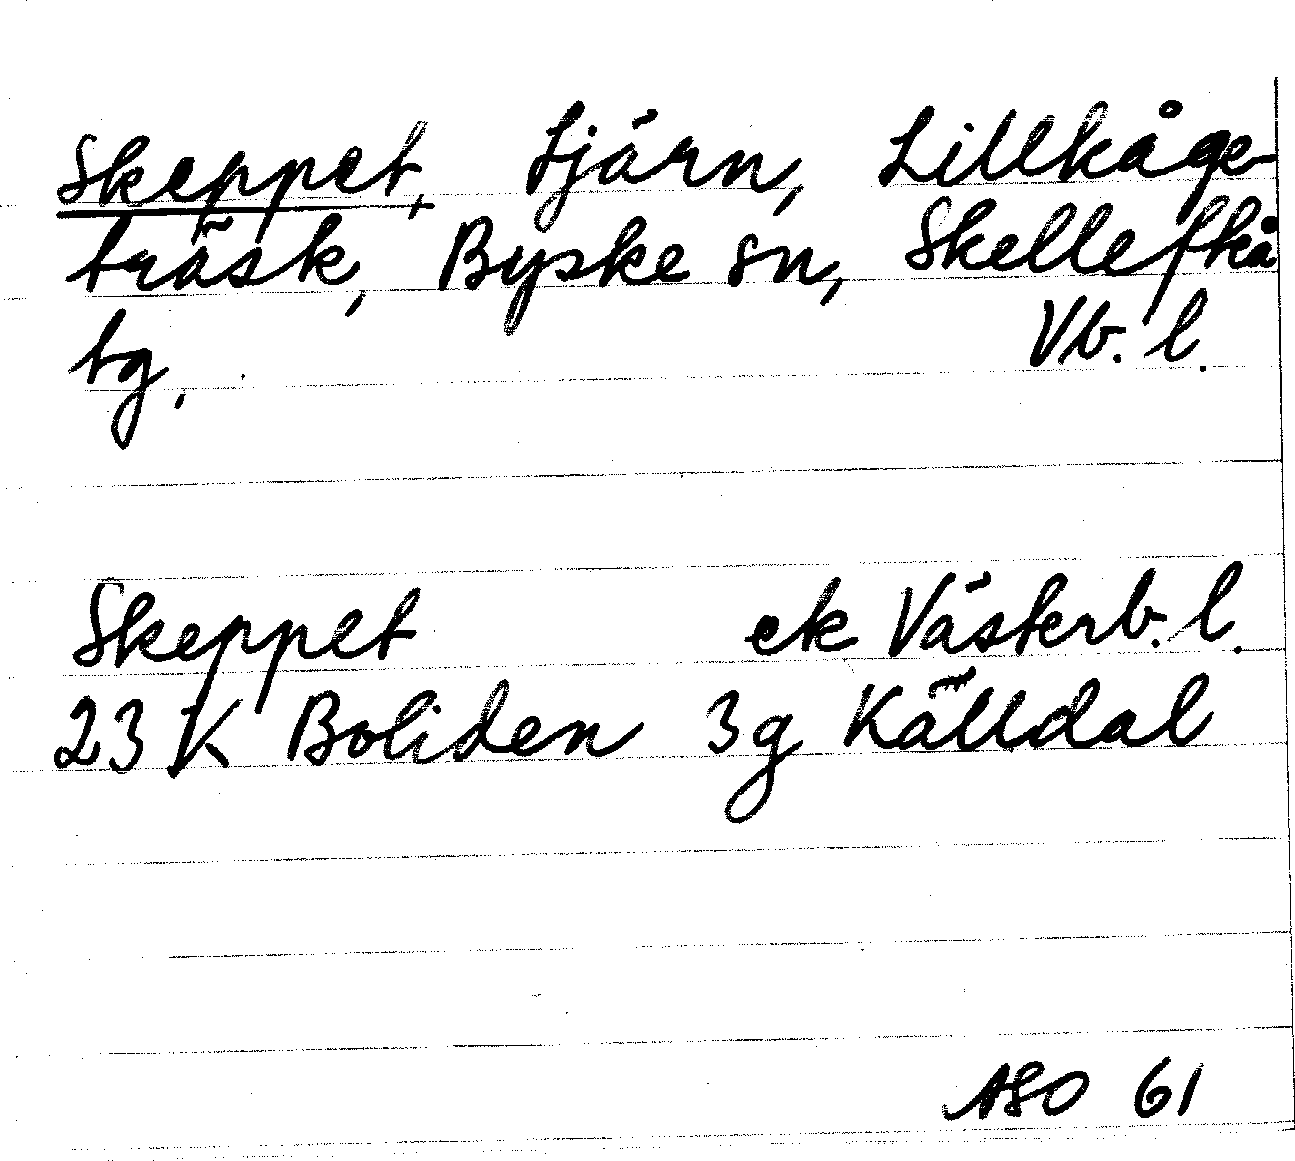 Skeppet, tjärn, Lillkåge-
träsk, Byske sn, Skellefteå
tg, Vb. l.
Skeppet ek Västerb. l.
23 K Boliden 3g Källdal
ASO 61